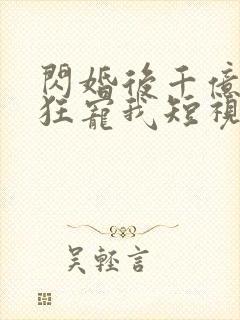 閃婚後千億
狂寵我短視
吳輕言